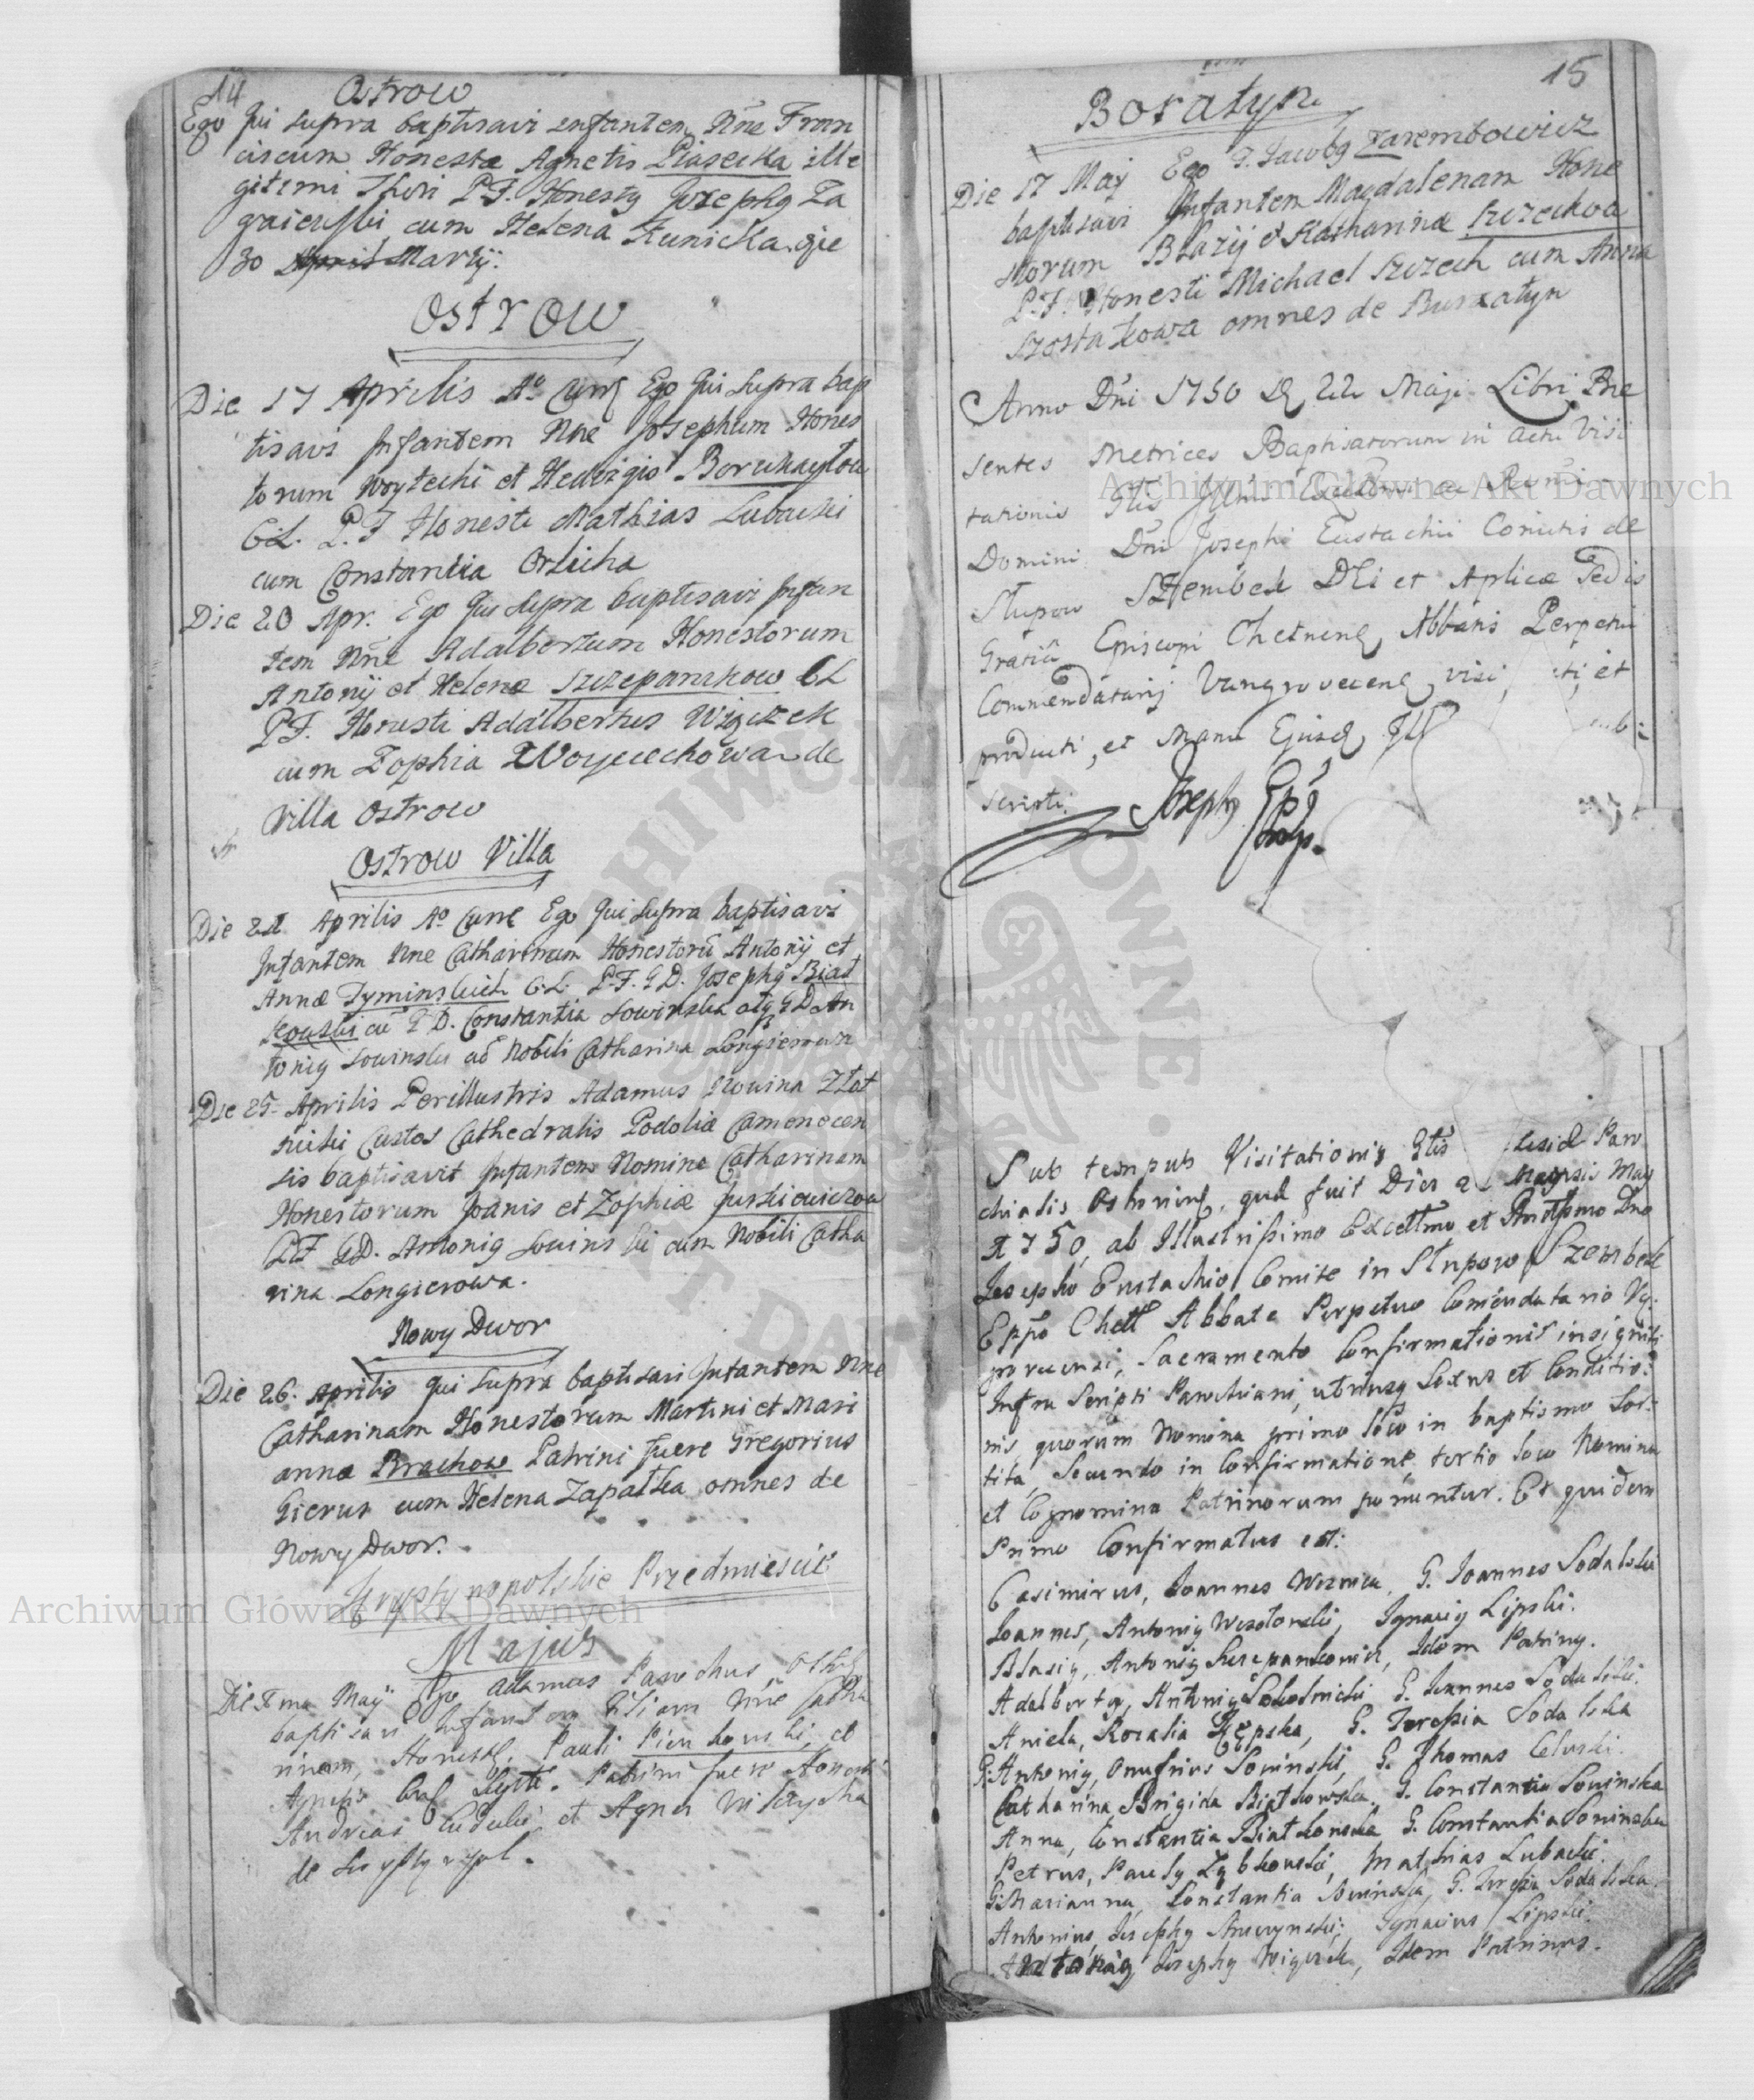 14
Ostrow
Ego Qui supra baptisavi infantem Nne Fran
ciscum Honesta Agnetis Piasecka ille
gitimi Thori P.F. Honestq Josephq Za
cum Helena Kunicka die
30 April Martij.
Ostrow
Die 17 Aprilis Ao Curr Ego Qui supra bap
tisavi Infantem Nne Josephum Hones
torum Woytechi et Hedvigis
C.L. P.F. Honesti Mathias Lubacki
cum Constantia Orlicka
Die 20 Apr. Ego Qui supra baptisavi Infan
tem Nne Adalbertum Honestorum
Antonij et Helenæ Szczepankow CL
P.F. Honesti Adalbertus Wiącek
cum Zophia Woyciechowa de
Villa Ostrow
Ostrow Villa
Die 22 Aprilis Ao Curr Ego Qui supra baptisavi
Infantem Nne Catharinam Honestorū Antonij et
Annæ Tyminskich C.L. P.F. G.D. Josephq Białˈ
kowski cū G.D. Constantia Łowinska atq G.D. An
toniq Łowinski cū Nobili Catharina Longierowa
Die 25 Aprilis Perillustris Adamus Nowina Złot
nicki Custos Cathedralis Podoliæ Camenecen
sis baptisavit Infantem Nomine Catharinam
Honestorum Joanis et Zophiæ Jurkiowiczow
P.F. G.D. Antoniq Łowinski cum Nobili Catha
rina Longierowa.
Nowy Dwor
Die 26. Aprilis Qui supra baptisavi Infantem Nne
Catharinam Honestorum Martini et Mari
annæ Brachow Patrini fuere Gregorius
Gierus cum Helena Zapałka omnes de
Nowy Dwor.
Krystynopolskie Przedmiescie
Majus
Die 8ma Maij Ego Adamus Parochus
baptisavi Infantem Filiam Nne Catha
rinam, Honest. Pauli Pienkowski, et
Agnetis Patrini fuere Honesti
Andreas et Agnes
de
15
Boratyn
Die 17 Maij Ego F. Jacobq Zarembowicz
baptisavi Infantem Magdalenam Hone
storum Blazij et Katharinæ Szczechow
P.F. Honesti Michael Szczech cum Anna
Szostakowa omnes de Buratyn
Anno Dni 1750 D 22 Maji Libri Præ
sentes Metrices Baptisatorum in actu Visi
tationis Glis
Domini Dni Josephi Eustachii Comitis de
Słupow Szembek DEi et Aplicæ Sedis
Gratiâ Episcopi Chelmens, Abbatis Perpetui
Commendatarij Vangrovecens, visi, et
producti, et Manu Ejusd
scripti.
Josephq Epq
Sub tempus Visitationis Glis Paro
chialis Ostrovins, qud fuit Dies 22 Mensis Maij
1750, ab Illustrissimo Excellmo et Rndssmo Dno
Josepho Eustachio Comite in Słupow Szembek
Eppo Chell Abbate Perpetuo Comendatario Vą
growecensi, Sacramento Confirmationis insigniti
Infra Scripti Parochiani, utriusq Sexus et Conditio
nis quorum Nomina primo loco in baptismo sor
tita, Secundo in Confirmatione, tertio loco Nomina
et Cognomina Patrinorum ponuntur. Et quidem
Primo Confirmatus est:
Casimirus, Joannes Woznica, G. Joannes Sodalski
Joannes, Antoniq Wesołowski, Ignatiq Lipski.
Blasiq, Antoniq Szczepankowicz, Idem Patrinq.
Adalbertq, Antoniq Sokolnicki G. Joannes Sodalski.
Aniela, Rosalia Kępska, G. Teresia Sodalska
G. Antoniq, Onufrius Łowinski, G. Thomas Celuski.
Catharina, Brigida Białkowska, G. Constantia Łowinska
Anna, Constantia Białkowska G. Constantia Łowinska
Petrus, Paulq Zębkowski, Mathias Lubacki.
G. Marianna, Constantia Łowinska, G. Teresia Sodalska.
Antonius, Josephq Ignatius Lipski.
Antoniq Josephq Wiącek, Idem Patrinus.
Archiwum Główne Akt Dawnych
Archiwum Główne Akt Dawnych